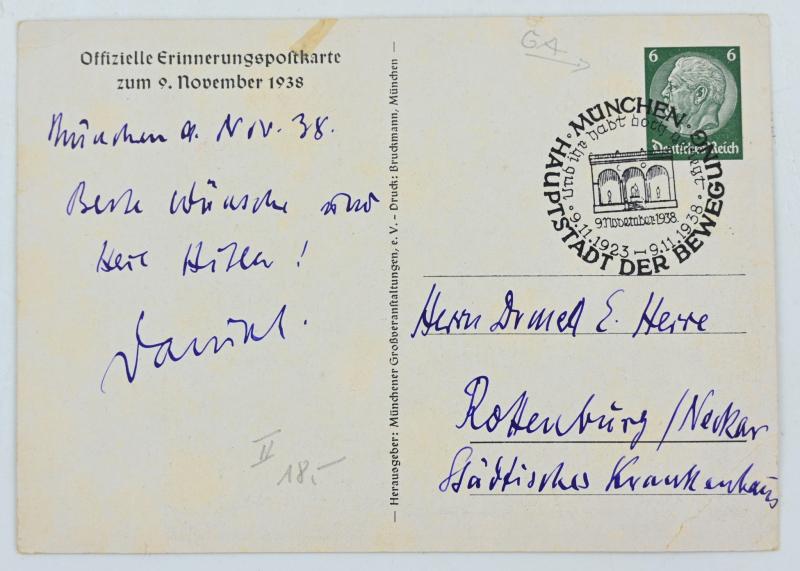 Offizielle Erinnerungspostkarte
zum 9. November 1938
München 9. Nov. 38.
Beste Wünsche und
Heil Hitler!
II
18.-
Herausgeber: Münchener Großveranstaltungen, e. V. – Druck: Bruckmann, München
GA
6 6
Deutsches Reich
· MÜNCHEN ·
HAUPTSTADT DER BEWEGUNG
Und ihr habt doch gesiegt
9. November 1938.
· 9.11.1923 – 9.11.1938 ·
Herrn Dr med E. Herre
Rottenburg/Neckar
Städtisches Krankenhaus